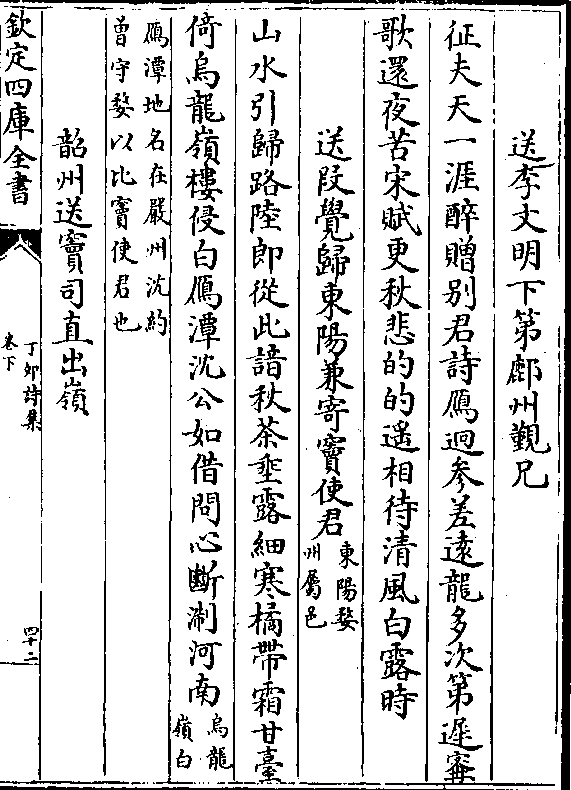 送李文明下第鄜州覲兄
征夫天一涯醉贈別君詩鴈迥參差遠龍多次第遲甯
歌還夜苦宋賦更秋悲的的遥相待清風白露時
送段覺歸東陽兼寄竇使君
東陽婺
州屬邑
山水引歸路陸郎從此諳秋茶垂露細寒橘帶霜甘臺
倚烏龍嶺樓侵白鴈潭沈公如借問心斷浙河南
烏龍
嶺白
鴈潭地名在嚴州沈約
曾守婺以比竇使君也
韶州送竇司直出嶺
欽定四庫全書
丁卯詩集
卷下
四十二